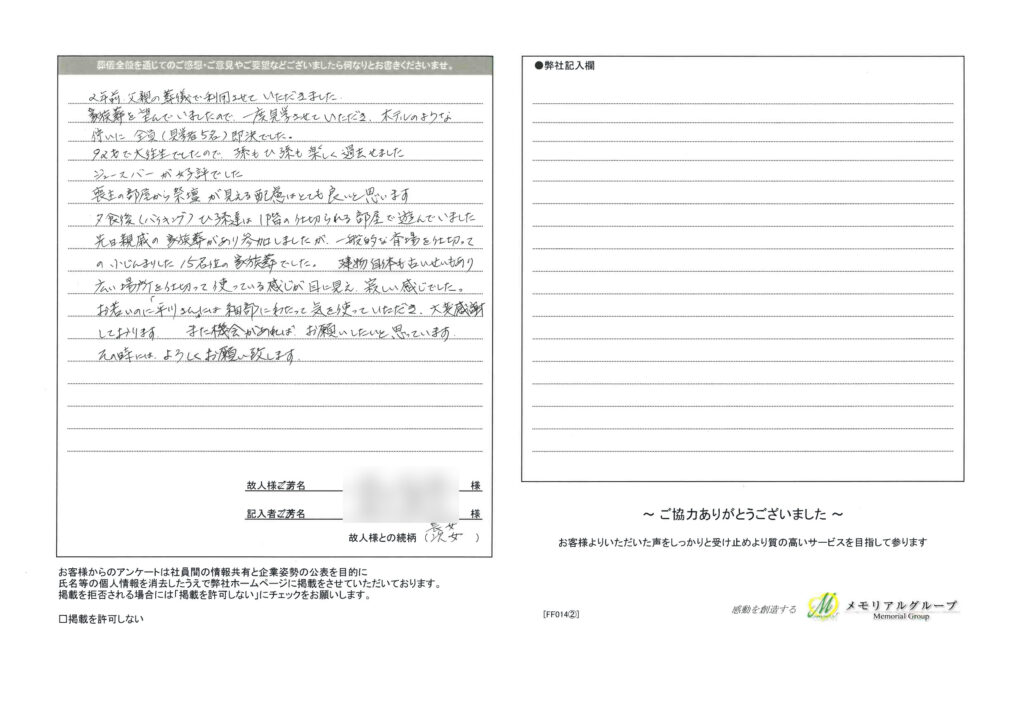 葬儀全般を通じてのご感想・ご意見やご要望などございましたら何なりとお書きくださいませ。
2年前、父親の葬儀で利用させていただきました。
家族葬を望んでいましたので、一度見学させていただき、ホテルのような
佇いに全員(見学者5名)即決でした。
92才で大往生でしたので、孫もひ孫も楽しく過せました
ジュースバーが好評でした
喪主の部屋から祭壇が見える配慮はとても良いと思います
夕食後(バイキング)ひ孫達は1階の仕切られる部屋で遊んでいました
先日親戚の家族葬があり参加しましたが、一般的な斎場を仕切って
の小じんまりした15名位の家族葬でした。 建物自体も古いせいもあり
広い場所を仕切って使っている感じが目に見え、寂しい感じでした。
お若いのに「平川さん」には細部にわたって気を使っていただき、大変感謝
しております。 また機会があれば、お願いしたいと思っています。
その時には、よろしくお願い致します。
故人様ご芳名 様
記入者ご芳名 様
長女
故人様との続柄 (次女 )
お客様からのアンケートは社員間の情報共有と企業姿勢の公表を目的に
氏名等の個人情報を消去したうえで弊社ホームページに掲載をさせていただいております。
掲載を拒否される場合には「掲載を許可しない」にチェックをお願いします。
□掲載を許可しない
●弊社記入欄
～ ご協力ありがとうございました ～
お客様よりいただいた声をしっかりと受け止めより質の高いサービスを目指して参ります
[FF014②]
感動を創造する
M
メモリアルグループ
Memorial Group